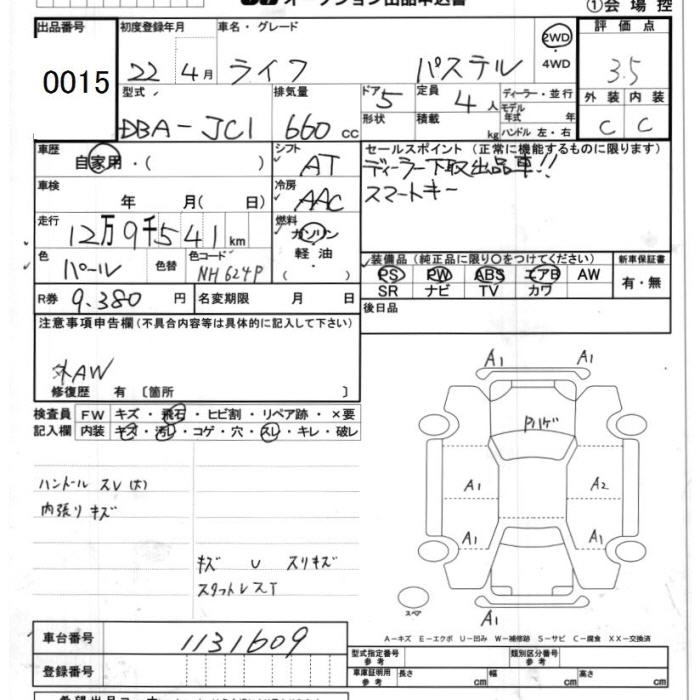 オークション出品申込書
①会場控
出品番号 初度登録年月 車名・グレード 2WD 評価点
0015 22年 4月 ライフ パステル ・4WD 3.5
型式 排気量 ドア 5 定員 4人 ディーラー・並行 外装 内装
DBA-JC1 660cc 形状 積載 kg モデル年式 年 C C
ハンドル 左・右
車歴 シフト セールスポイント (正常に機能するものに限ります)
自家用・( ) AT ディーラー下取出品車!!
車検 冷房 スマートキー
年 月( 日) AAC
走行 燃料
12万9千541km ガソリン
色 色替 色コード 軽油 装備品(純正品に限り○をつけてください) 新車保証書
パール NH624P ・( ) PS PW ABS エアB AW 有・無
R券 9.380円 名変期限 月 日 SR ナビ TV カワ
後日品
注意事項申告欄(不具合内容等は具体的に記入して下さい)
外AW
修復歴 有 〔箇所 〕
検査員 FW キズ・飛石・ヒビ割・リペア跡・×要
記入欄 内装 キズ・汚レ・コゲ・穴・スレ・キレ・破レ
ハンドル スレ(大)
内張り キズ
キズ U スリキズ
スタットレスT
A1 A1
Pハゲ
A1 A2
A1 A1
スペア
A1
A-キズ E-エクボ U-凹み W-補修跡 S-サビ C-腐食 XX-交換済
車台番号 1131609
登録番号
型式指定番号 参考 類別区分番号 参考
車庫証明用 参考 長さ cm 幅 cm 高さ cm